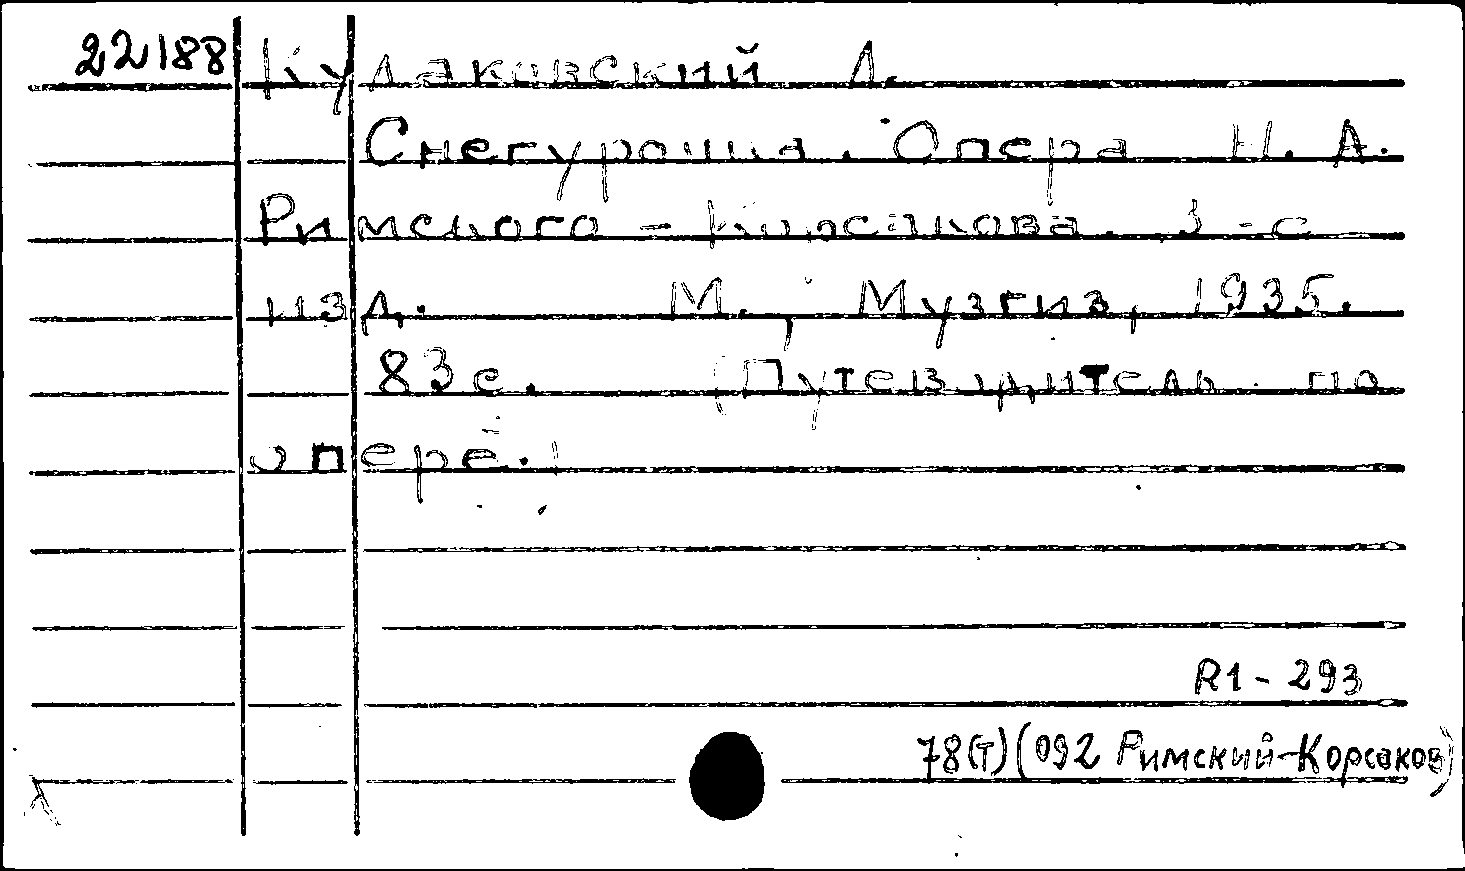 22188 Кулаковский Л.
Снегурочка. Опера Н. А.
Римского-Корсакова. 3-е
изд. М., Музгиз, 1935.
83 с. (Путеводитель по
опере.)
R1-293
78(Т)(092 Римский-Корсаков)